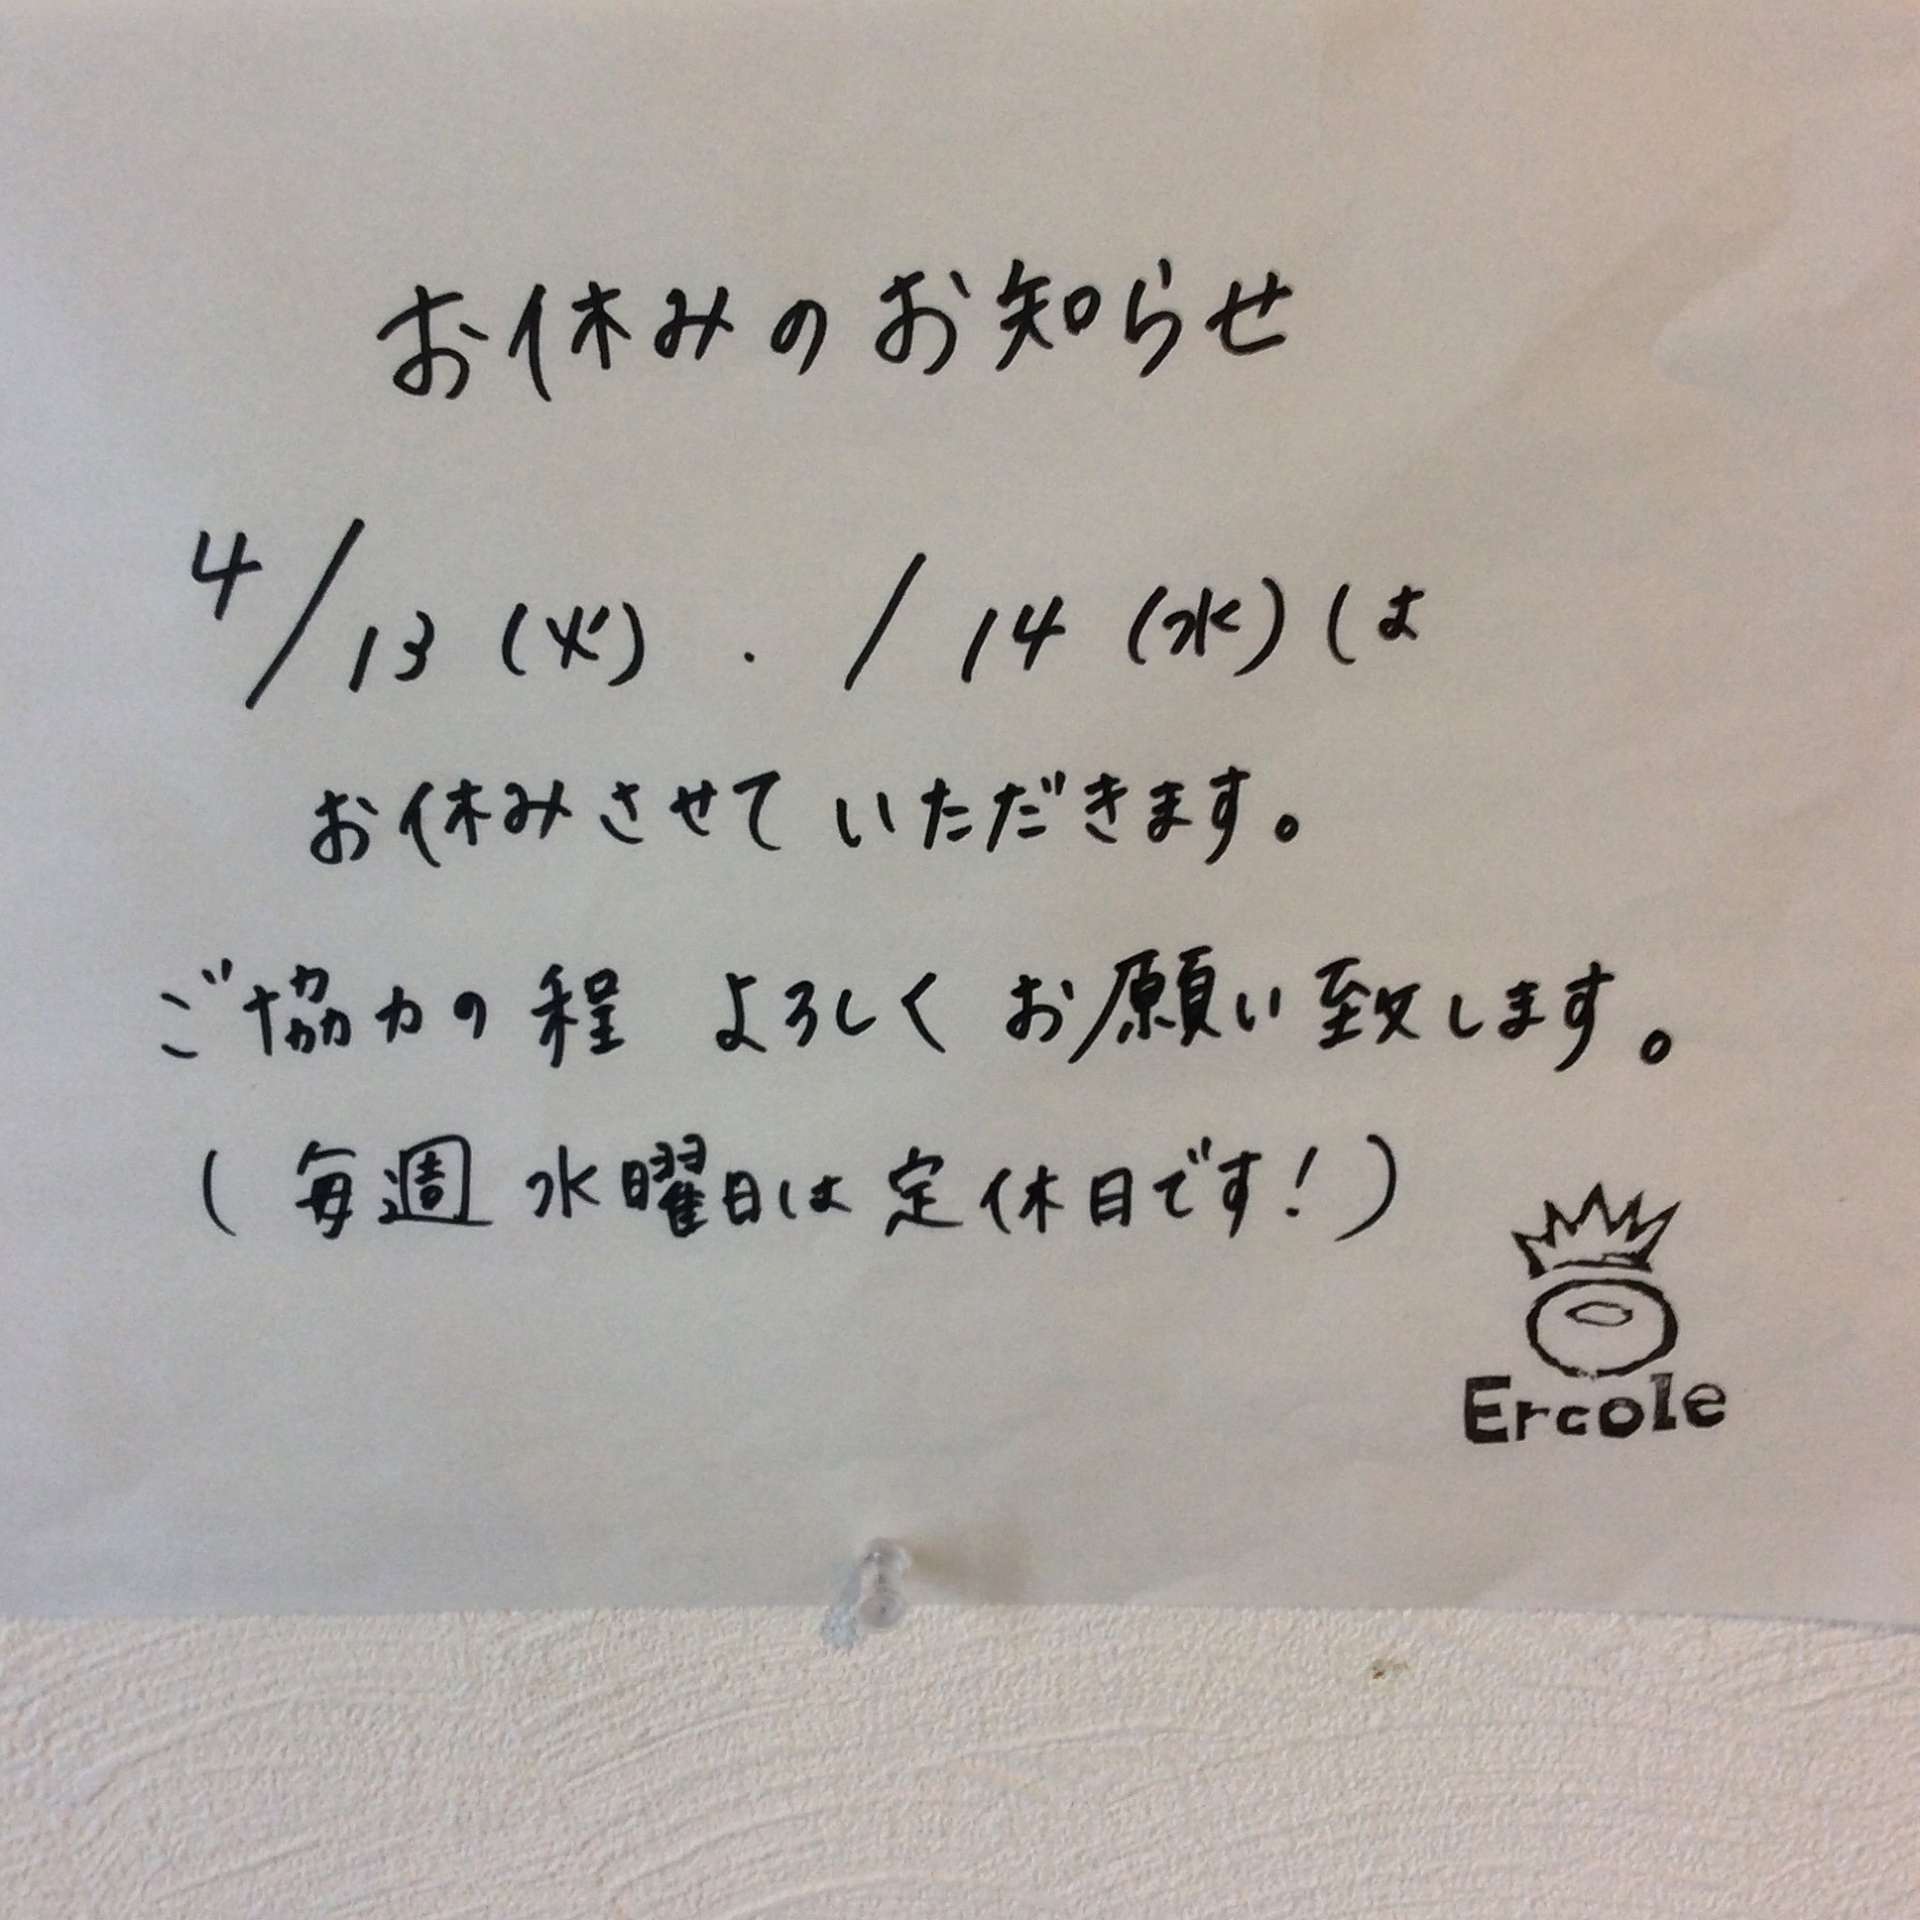 お休みのお知らせ
4/13(火)．/14(水)は
お休みさせていただきます。
ご協力の程 よろしくお願い致します。
(毎週 水曜日は定休日です!)
Ercole